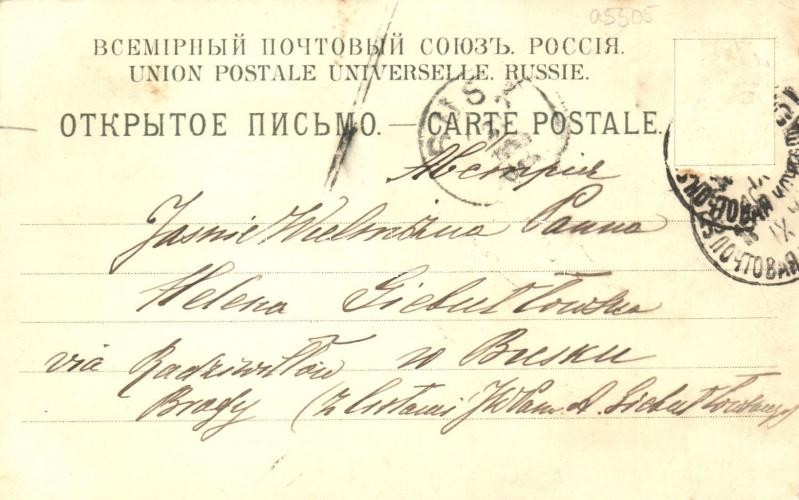 a5505
ВСЕМІРНЫЙ ПОЧТОВЫЙ СОЮЗЪ. РОССІЯ.
UNION POSTALE UNIVERSELLE. RUSSIE.
ОТКРЫТОЕ ПИСЬМО. — CARTE POSTALE.
BUSK
ПОЧТОВАЯ
Австрія
Jaśnie Wielmożna Panna
Helena Giebułtowska
via Radziwiłłów w Busku
Brody (z listami JWPana A. Giebułtowskiego)